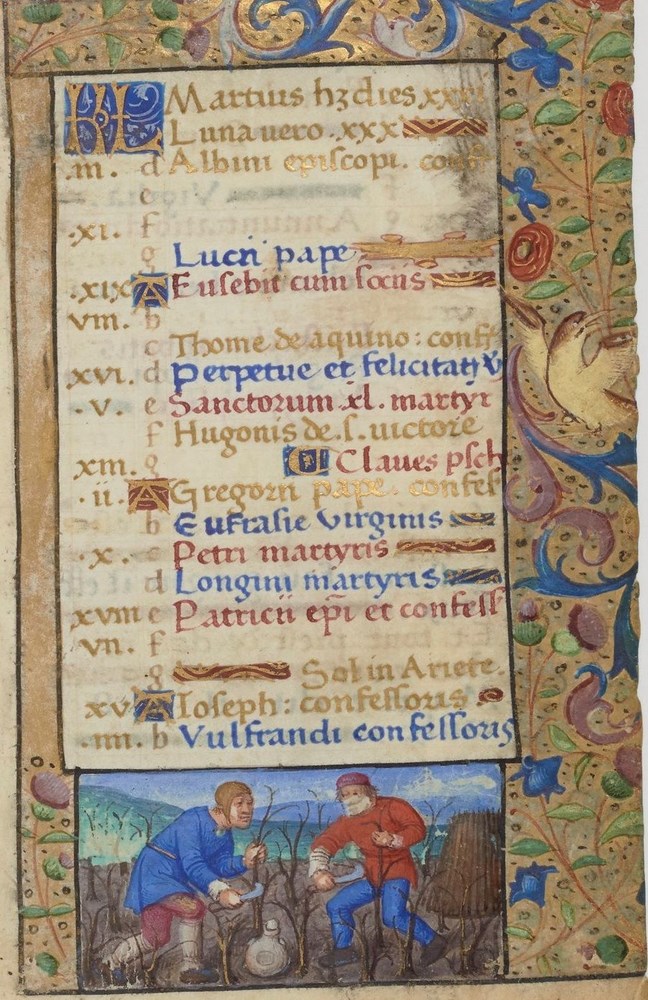 KL Martius hʒ dies xxxi
Luna vero .xxx.
.iii. d Albini episcopi. conf
e
.xi. f
g Lucii pape
.xix A Eusebii cum sociis
viii. b
c Thome de aquino: conff
xvi. d Perpetue et felicitatis v
.v. e Sanctorum .xl. martyr
f Hugonis de .s. victore
xiii. g Claves psch
.ii. A Gregorii pape. confes
b Eufrasie virginis
.x. c Petri martyris
d Longini martyris
xviii e Patricii epi et confess
vii. f
g Sol in Ariete.
xv A Ioseph: confessoris
.iiii. b Vulfrandi confessoris